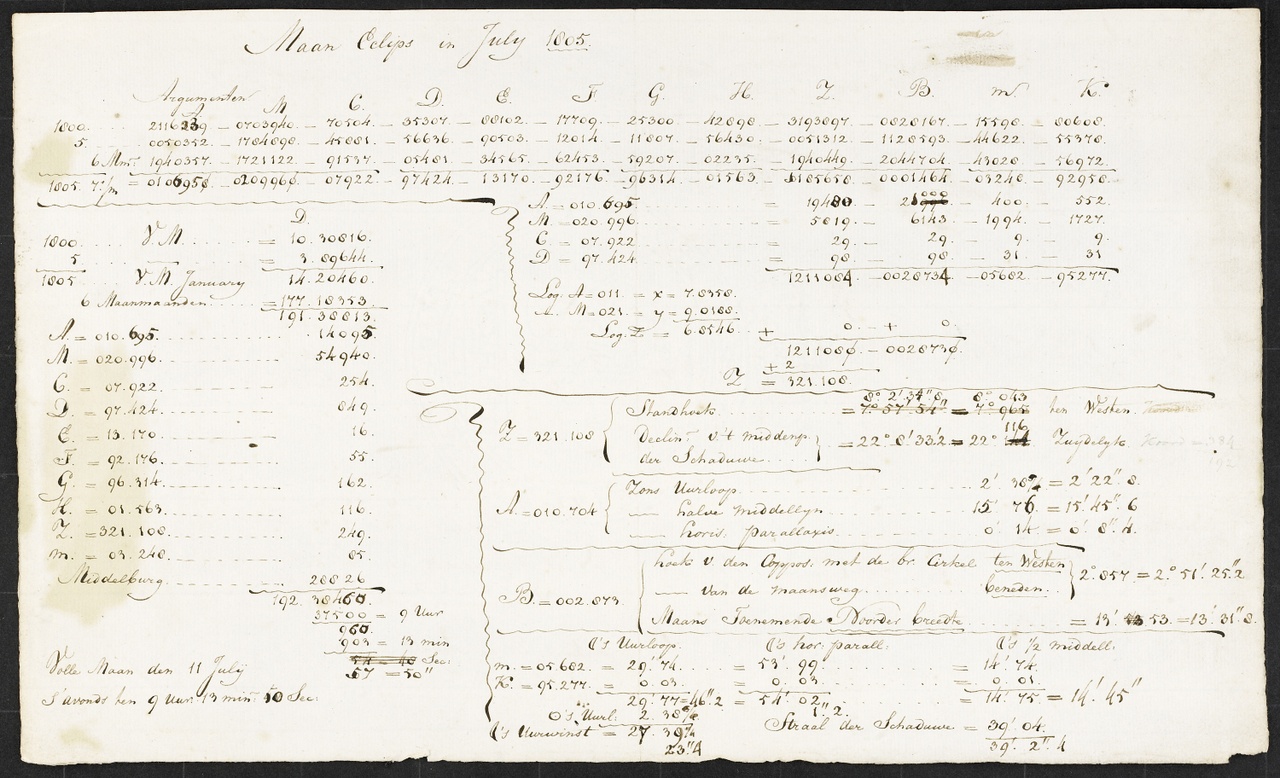 Maan Eclips in July 1805.
Argumenten
A. M. C. D. E. F G. H. Z. B. m. K.
1800. . . . 2116339. – 0703940. – 70504. – 35307. – 88102. – 17709. – 25300 – 42898. – 3193897. – 0828167. – 15598. – 80608.
5. . . . 0050352. – 1784898. – 45881. – 56636. – 90503. – 12014. – 11807. – 56430. – 0051312. – 1128593. – 44622. – 55378.
6 Mn. 1940357. – 1721122. – 91537. – 05481. – 34565. – 62453. – 59207. – 02235. – 1940449. – 2044704. – 43028. – 56972.
1805. = 0106958. – 0209960. – 07922. – 97424. – 13170. – 92176. – 96314. – 01563. – 5185658. – 0001464. – 03248. – 92958.
A. = 010.695. = 19480 – 21000 – 400. – 552.
M. = 020.996. = 5819. – 6143. – 1994. – 1727.
C. = 07.922 = 29. – 29. – 9. – 9.
D = 97.424. = 98. – 98. – 31. – 31
1211084. – 0028734. – 05682. – 95277.
Log. A = 011. = x = 7.8358.
M = 021. = y = 9.0188.
Log. Z = 6.8546. + 0. – + 0.
1211086. – 002873
+ 2
Z = 321.108.
D.
1800. V.M. = 10.30816.
5. = 3.89644.
1805. V.M. January 14.20460.
6 Maanmaanden = 177.18353.
191.38813.
A. = 010.695. 14095.
M. = 020.996. 54940.
C. = 07.922 254.
D. = 97.424. 849.
E. = 13.170 16.
F. = 92.176. 55.
G. = 96.314. 162.
H. = 01.563. 116.
Z. = 321.108. 249.
m. = 03.248. 85.
Middelburg. 28826
192.38460.
37500 = 9 Uur
960.
903 = 13 min
54 = 48 Sec:
57 = 50"
Volle Maan den 11 July
S'avonds ten 9 Uur 13 min. 50 Sec.
Z = 321.108
8° 2' 34"8 8° 043
Standhoek = 7° 57' 54" = 7° 965 ten Westen.
Declin. v. 't middenp. der Schaduwe = 22° 8' 33"2 = 22° 116 Zuydelyk
A. = 010.704
Zons Uurloop 2'. 38 = 2' 22" 8.
— halve middellyn 15' 76. = 15' 45" 6
— horis. parallaxis 0' 14. = 0' 8" 4.
B. = 002.873.
hoek v. den Coppos: met de br. Cirkel ten Westen
— van de maansweg beneden.
2° 857 = 2° 51' 25"2
Maans Toenemende Noorder breedte = 13'. 53. = 13' 31" 8.
☾'s Uurloop. ☾'s hor: parall: ☾'s ½ middell:
m. = 05.682. = 29' 74. = 53'. 99. = 14' 74.
K. = 95.277. = 0. 03. = 0. 03. = 0. 01.
29' 77 = 46"2 = 54' 02 = 14' 75 = 14' 45"
1" 2
☉'s Uurl: 2. 38
☾'s Uurwinst = 27. 39
23"4
Straal der Schaduwe = 39' 04.
39' 2" 4